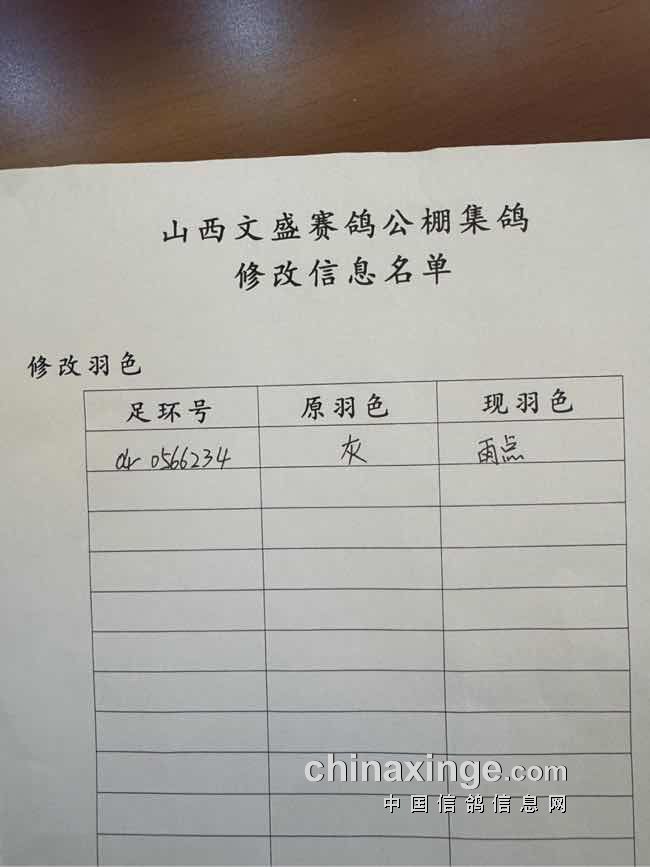 山西文盛赛鸽公棚集鸽
修改信息名单
修改羽色
足环号 原羽色 现羽色
04-0566234 灰 雨点
chinaxinge.com
中国信鸽信息网